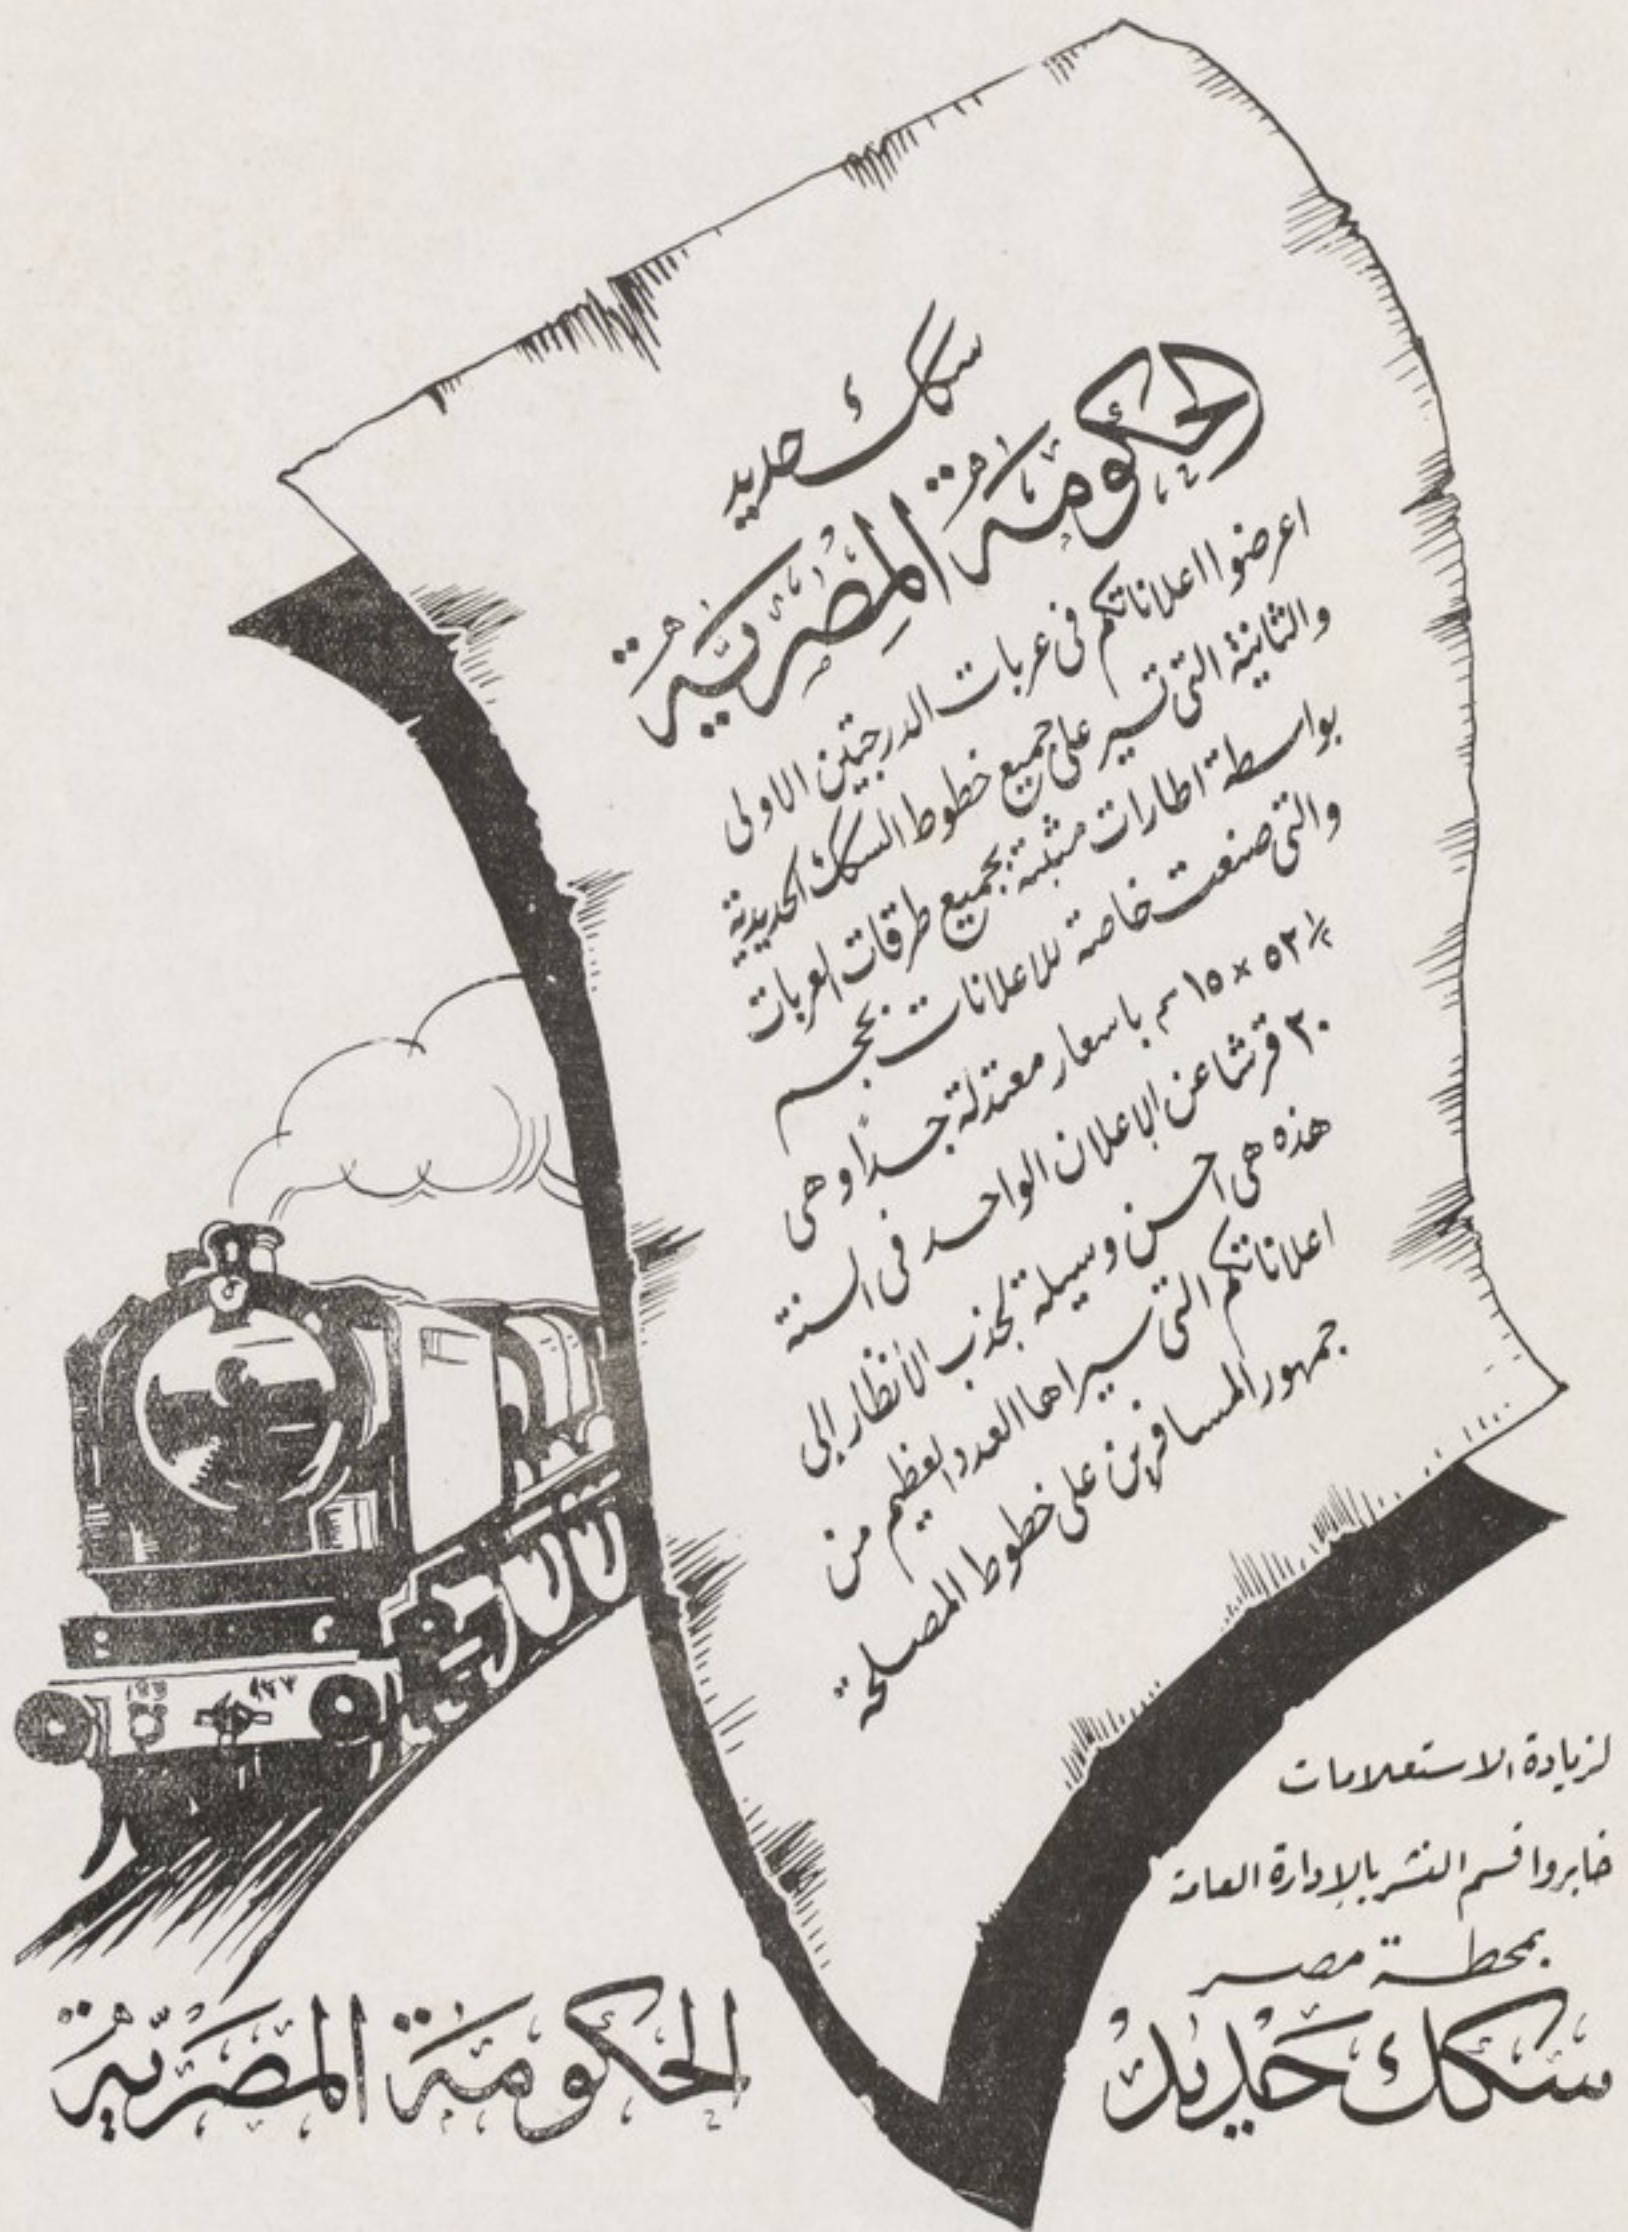 سكك حديد
الحكومة المصرية
اعرضوا اعلاناتكم فى عربات الدرجتين الاولى
والثانية التى تسير على جميع خطوط السكك الحديدية
بواسطة اطارات مثبتة بجميع طرقات العربات
والتى صنعت خاصة للاعلانات بحجم
٥٢ ١/٢ × ١٥ سم باسعار معتدلة جدًا وهى
٣٠ قرشا عن الاعلان الواحد فى السنة
هذه هى احسن وسيلة تجذب الأنظار إلى
اعلاناتكم التى سيراها العدد العظيم من
جمهور المسافرين على خطوط المصلحة
لزيادة الاستعلامات
خابروا قسم النشر بالإدارة العامة
بمحطة مصر
سكك حديد الحكومة المصرية